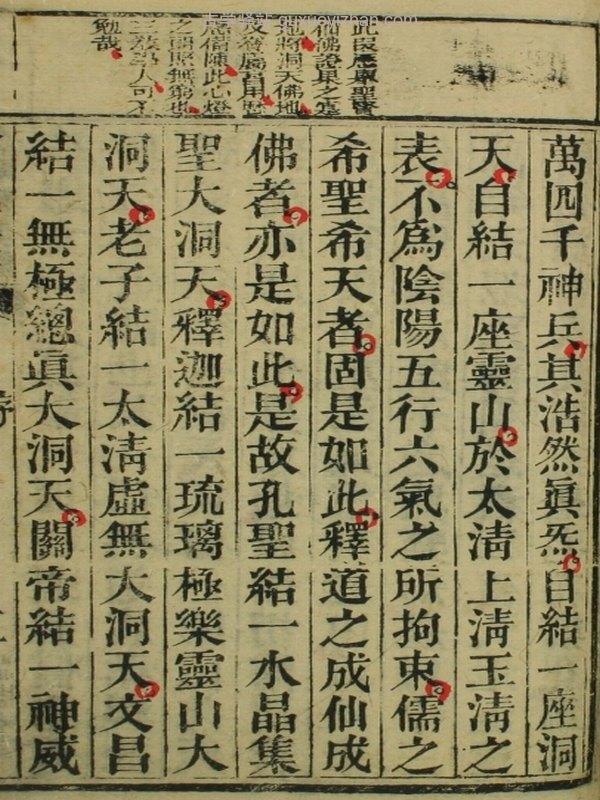 guxueyizhan.com
此段應顯聖
仙佛證果之
將洞天佛地
陳此心燈
之朗照無窮也
學人可不
勉哉
萬四千神兵其浩然眞炁自結一座洞
天自結一座靈山於太淸上淸玉淸之
表不爲陰陽五行六氣之所拘束儒之
希聖希天者固是如此釋道之成仙成
佛者亦是如此是故孔聖結一水晶集
聖大洞天釋迦結一琉璃極樂靈山大
洞天老子結一太淸虛無大洞天文昌
結一無極總眞大洞天關帝結一神威